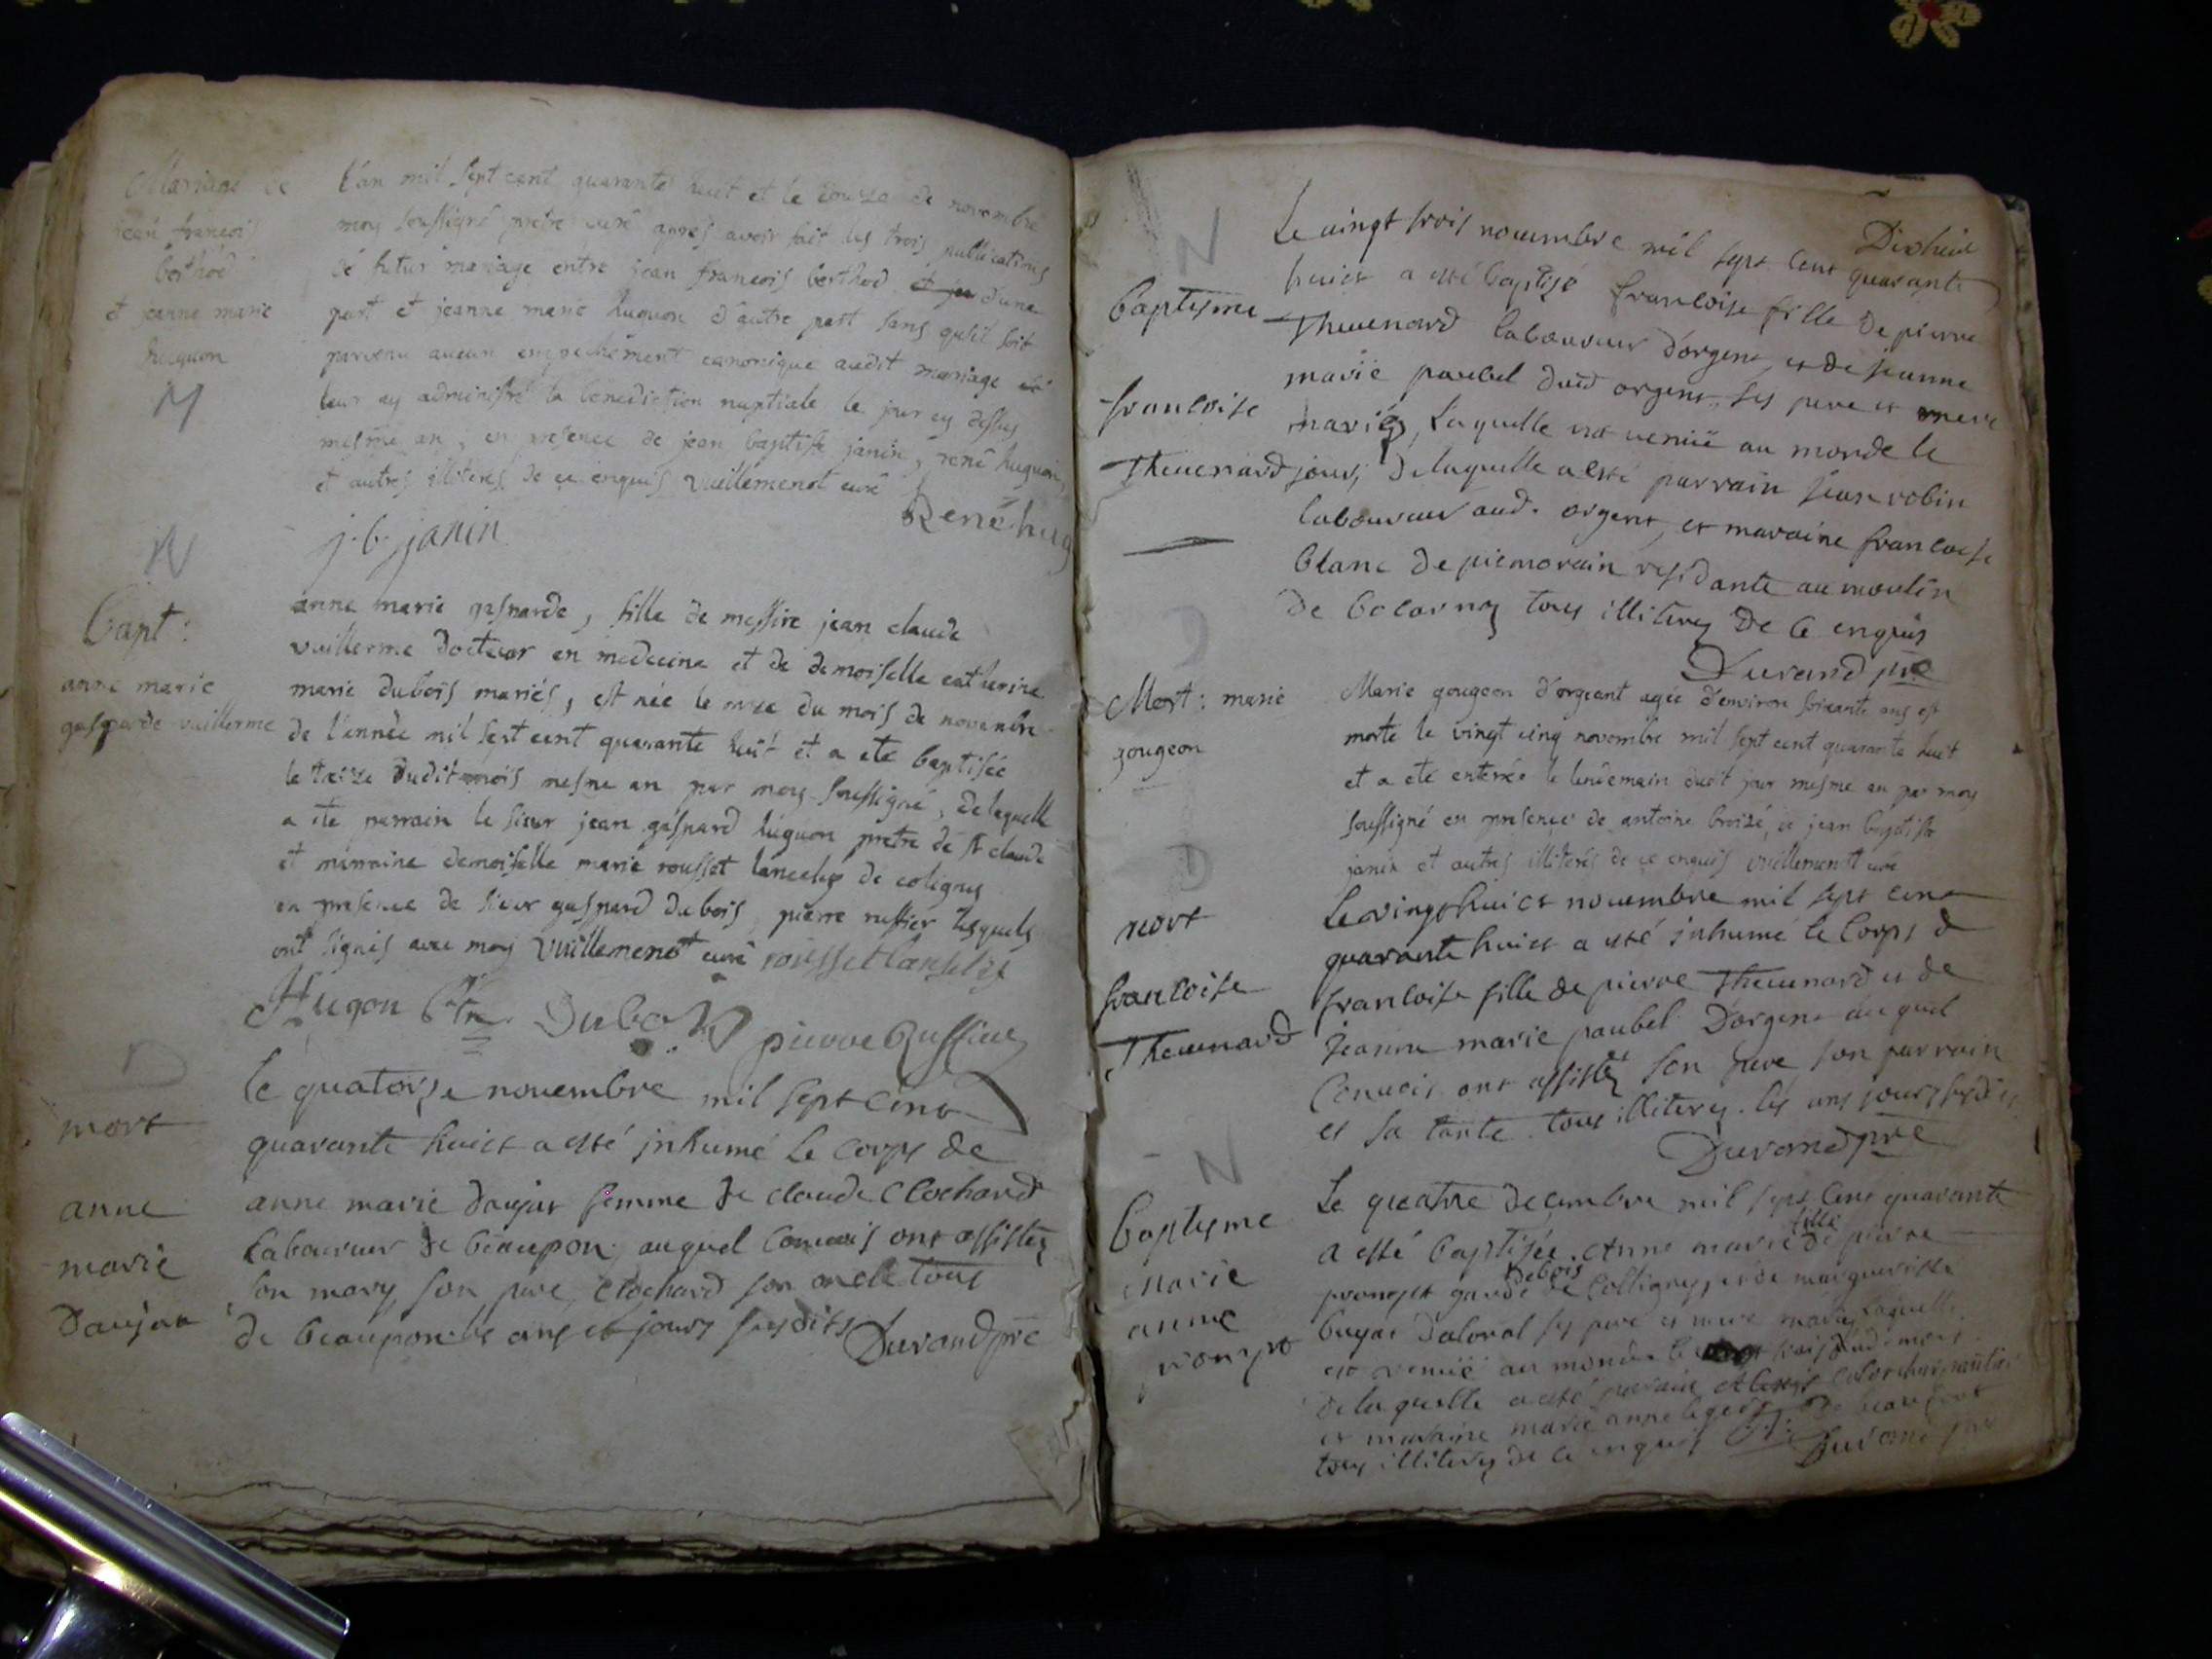 Mariage de
jean francois
berthod
et jeanne marie
huguon
M
L'an mil sept cent quarante huit et le douze de novembre
moy soussigné pretre curé apres avoir fait les trois publications
de futur mariage entre jean francois berthod et d'une
part et jeanne marie huguon d'autre part sans qu'il soit
parvenu aucun empechement canonique audit mariage
leur ay administré la benediction nuptiale le jour cy dessus
mesme an, en presence de jean baptiste janin, rené huguon,
et autres illiteres de ce enquis vuillemenot curé
René hug
j.b. janin
N
Bapt:
anne marie
gasparde vuillerme
anne marie gasparde, fille de messire jean claude
vuillerme docteur en medecine et de demoiselle catherine
marie dubois mariés, est née le onze du mois de novembre
de l'année mil sept cent quarante huit et a eté baptisée
le treize dudit mois mesme an par moy soussigné, de laquelle
a ete parrain le sieur jean gaspard huguon pretre de st claude
et marraine demoiselle marie rousset de coligny
en presence de sieur gaspard dubois, pierre ruffier lesquels
ont signés avec moy vuillemenot curé
Hugon ptre Dubois pierre Ruffier
D
mort
anne
marie
Daujat
le quatorze novembre mil sept cent
quarante huict a esté inhumé le corps de
anne marie daujat femme de claude Clochard
Laboureur de beaupon, auquel convois ont assistez
son mary son pere, Clochard son oncle tous
de beaupon les ans et jours susdits Durand ptre
Dixhuit
N
Baptesme
francoise
Theuenard
Le vingt trois nouembre mil sept cent quarante
huict a esté baptizé francoise fille de pierre
Theuenard laboureur d'orgent, et de jeanne
marie paubel dud orgent, ses pere et mere
mariez, Laquelle est venüe au monde le
jour, de laquelle a esté parrain jean robin
laboureur aud. orgent, et maraine francoise
blanc de piemorain residante au moulin
de tous illiterez de ce enquis
Durand ptre
D
Mort: marie
gougeon
Marie gougeon d'orgeant agée d'environ soixante ans est
morte le vingt cinq novembre mil sept cent quarante huit
et a eté enterrée le lendemain dudit jour mesme an par moy
soussigné en presence de antoine broisé, de jean baptiste
janin et autres illiterés de ce enquis vuillemenot curé
D
mort
francoise
Theuenard
Le vingt huict nouembre mil sept cent
quarante huict a esté inhumé le corps de
francoise fille de pierre Theuenard et de
jeanne marie paubel d'orgent auquel
Conuois ont assistez son pere son parrain
et sa tante. tous illiterez. les ans jours susdits
Durand ptre
N
Baptesme
marie
anne
Le quatre decembre mil sept cent quarante
a esté baptisée. Anne marie fille de pierre
garde debois de Colligny, et de margueritte
ses pere et mere mariez laquelle
est venüe au monde le trois dud. mois
de laquelle a esté parain
et maraine marie anne
tous illiterez de ce enquis Durand ptre